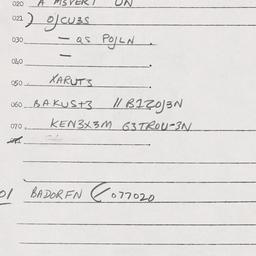 020 A MSVERT UN
021 ) OJCUBS
030 — as POJLN .
040 — .
050 XARUTS .
060 BAKUS+3 // B1ZOJ3N
070 KEN3X3M G3TROU-3N
01 BADOREN (077020